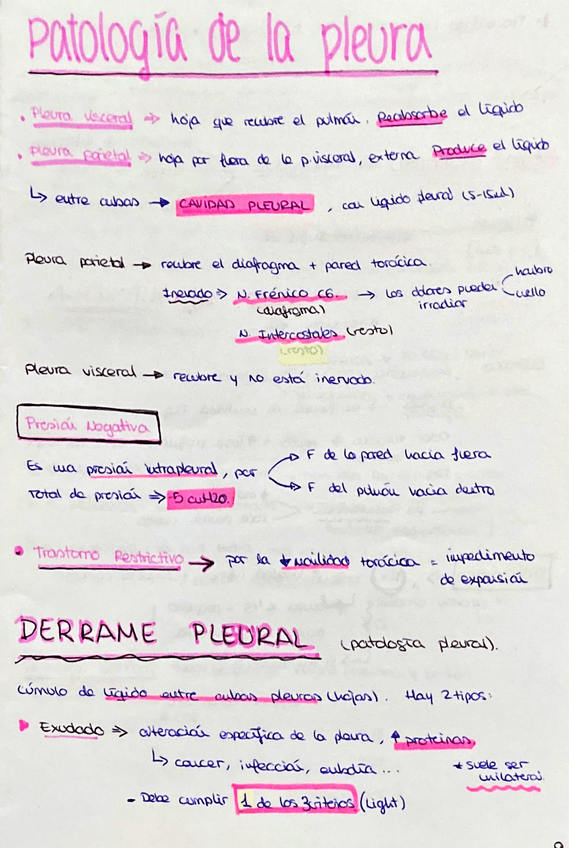 Patología de la pleura
• Pleura visceral ⇒ hoja que recubre el pulmón. Reabsorbe el líquido
• Pleura parietal ⇒ hoja por fuera de la p. visceral, externa. Produce el líquido
↳ entre ambas → CAVIDAD PLEURAL, con líquido pleural (5-15ml)
Pleura parietal → recubre el diafragma + pared torácica.
Inervado ⇒ N. Frénico C6. → los dolores pueden irradiar < hombro
cuello
(diafragma)
N. Intercostales (resto)
(resto)
Pleura visceral → recubre y no está inervado.
Presión Negativa
Es una presión intrapleural, por
→ F de la pared hacia fuera
→ F del pulmón hacia dentro
Total de presión ⇒ -5 cmH2O.
• Trastorno Restrictivo → por la ↓ movilidad torácica = impedimento
de expansión
DERRAME PLEURAL (patología pleural).
Cúmulo de líquido entre ambas pleuras (hojas). Hay 2 tipos:
▶ Exudado ⇒ alteración específica de la pleura, ↑ proteínas,
↳ cáncer, infección, embolia...
* suele ser
unilateral
- Debe cumplir 1 de los 3 criterios (Light)